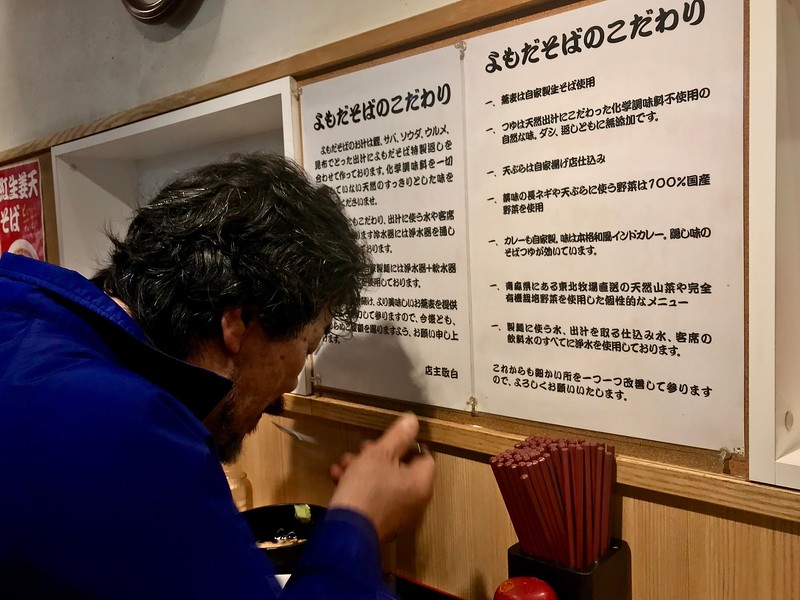 紅生姜天
そば
よもだそばのこだわり
よもだそばのお汁は鰹、サバ、ソウダ、ウルメ、
昆布でとった出汁によもだそば特製返しを
合わせて作っております。化学調味料を一切
ていない天然のすっきりとした味を
くださいませ。
もこだわり、出汁に使う水や客席
ります冷水器には浄水器を通し
おります。
自家製麺には浄水器+軟水器
使用しております。
け、より美味しいお蕎麦を提供
して参りますので、今後とも、
を賜りますよう、お願い申し上
げます。
店主敬白
よもだそばのこだわり
一、蕎麦は自家製生そば使用
一、つゆは天然出汁にこだわった化学調味料不使用の
自然な味。ダシ、返しともに無添加です。
一、天ぷらは自家揚げ店仕込み
一、薬味の長ネギや天ぷらに使う野菜は100%国産
野菜を使用
一、カレーも自家製。味は本格和風インドカレー。隠し味の
そばつゆが効いています。
一、青森県にある東北牧場直送の天然山菜や完全
有機栽培野菜を使用した個性的なメニュー
一、製麺に使う水、出汁を取る仕込み水、客席の
飲料水のすべてに浄水を使用しております。
これからも細かい所を一つ一つ改善して参ります
ので、よろしくお願いいたします。